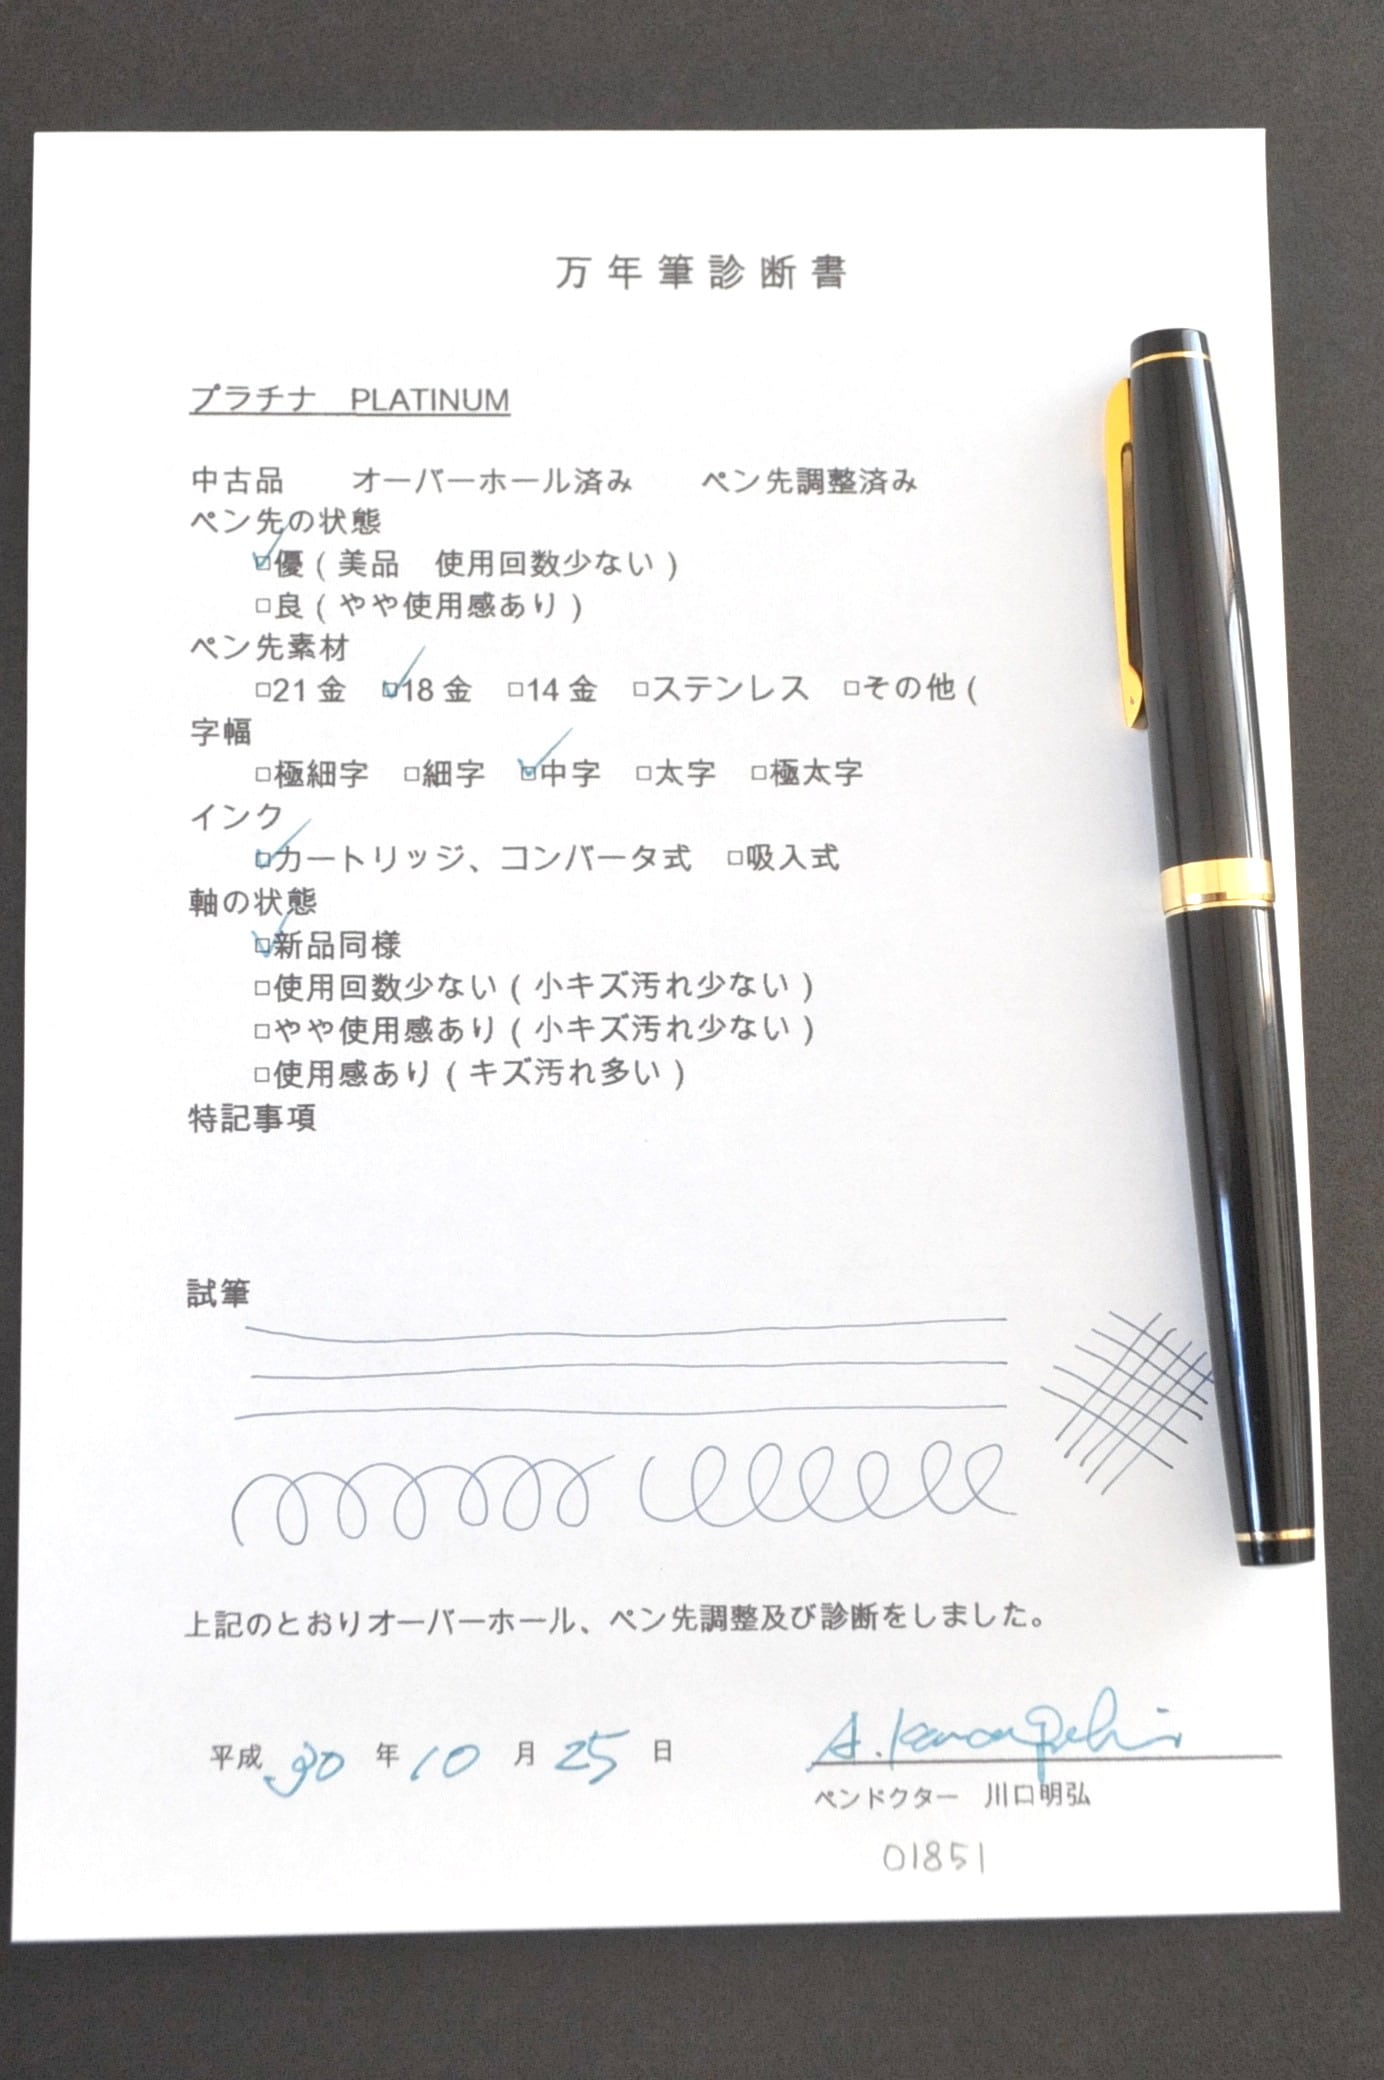 万年筆診断書
プラチナ　PLATINUM
中古品　　オーバーホール済み　　ペン先調整済み
ペン先の状態
☑優（美品　使用回数少ない）
□良（やや使用感あり）
ペン先素材
□21金　☑18金　□14金　□ステンレス　□その他（
字幅
□極細字　□細字　☑中字　□太字　□極太字
インク
☑カートリッジ、コンバータ式　□吸入式
軸の状態
☑新品同様
□使用回数少ない（小キズ汚れ少ない）
□やや使用感あり（小キズ汚れ少ない）
□使用感あり（キズ汚れ多い）
特記事項
試筆
上記のとおりオーバーホール、ペン先調整及び診断をしました。
平成 30 年 10 月 25 日　A. Kawaguchi
ペンドクター　川口明弘
01851